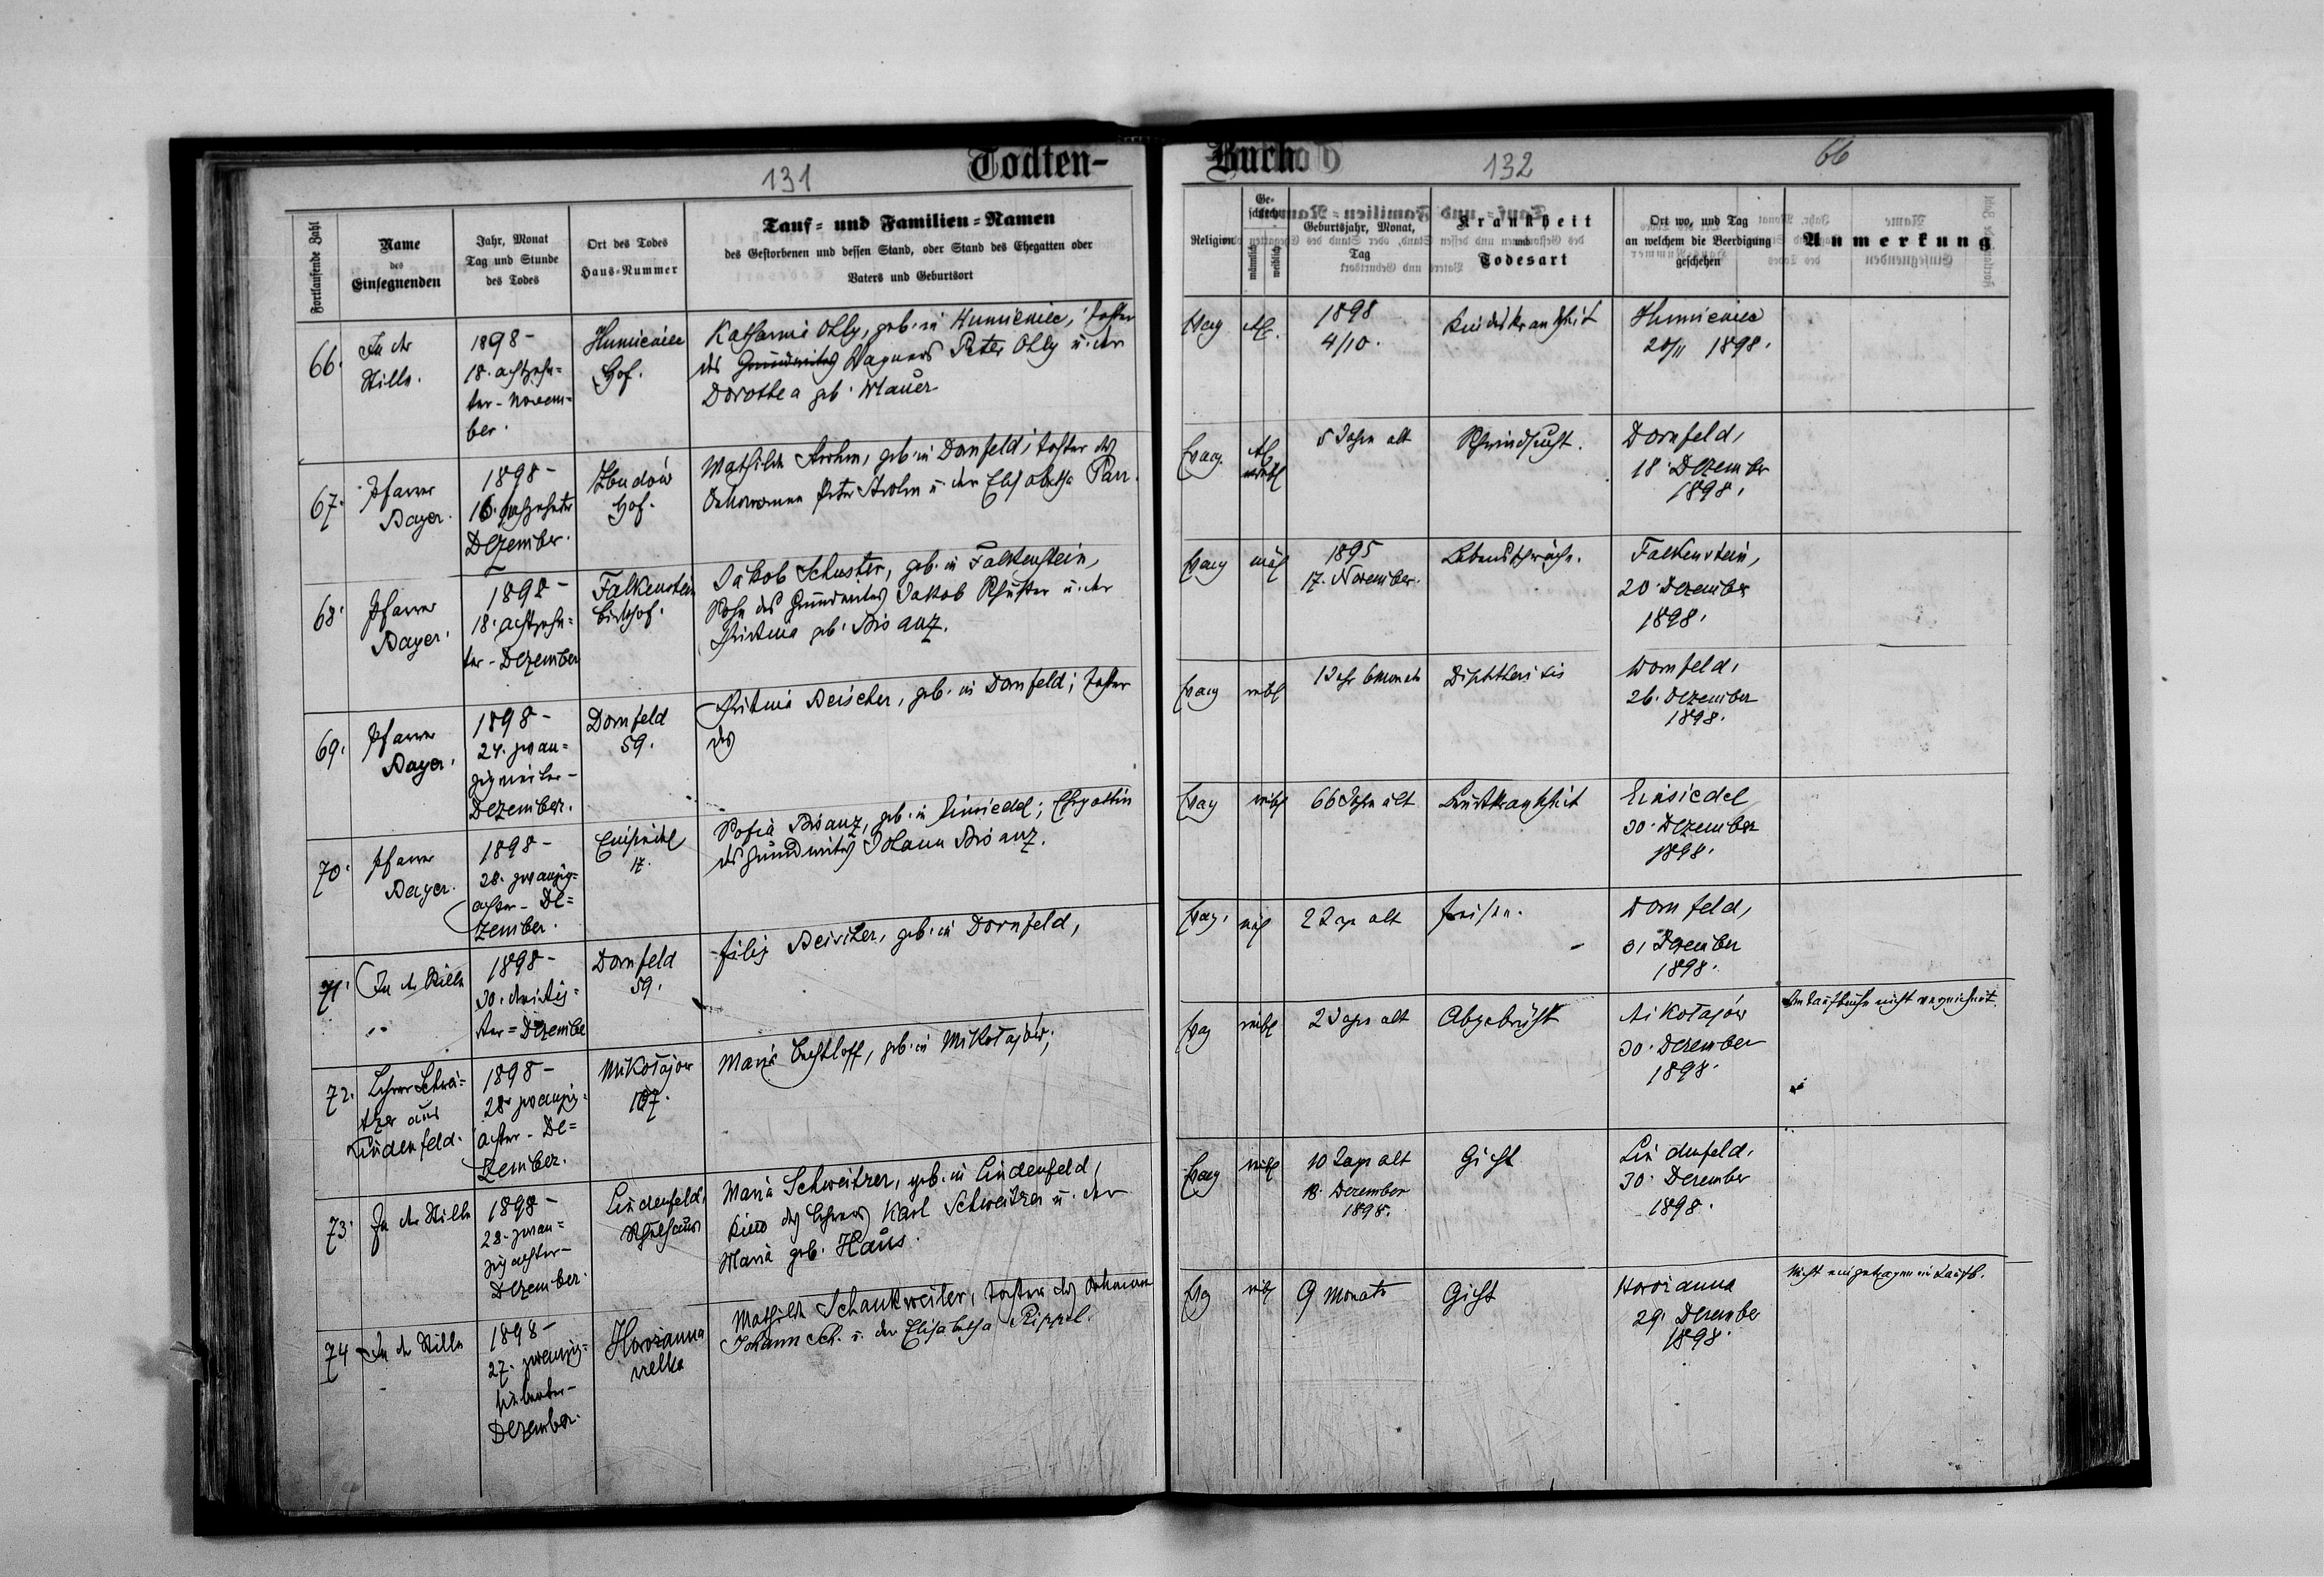 131
Todten-
Fortlaufende Zahl
Name
des
Einsegnenden
Jahr, Monat
Tag und Stunde
des Todes
Ort des Todes
Haus-Nummer
Tauf- und Familien-Namen
des Gestorbenen und dessen Stand, oder Stand des Ehegatten oder
Vaters und Geburtsort
66.
In der
Stille.
1898 -
18. achtzehn-
ter - Novem-
ber.
Humieniec
Hof.
Katharina Ohly, geb. in Humieniec, Tochter
des Grundwirtes Wagners Peter Ohly u. der
Dorothea geb. Mauer
67.
Pfarrer
Bayer.
1898 -
16.
Dezember.
Hof.
Mathilde Strohm, geb. in Dornfeld; Tochter des
Oekonomen Peter Strohm u. der Elisabetha Parr.
68.
Pfarrer
Bayer.
1898 -
18. achtzehn-
ter - Dezember
Falkenstein
Jakob Schuster, geb. in Falkenstein,
Sohn des Grundwirtes Jakob Schuster u. der
Christina geb. Bisanz.
69.
Pfarrer
Bayer.
1898 -
24. zwan-
zigvierter -
Dezember.
Dornfeld
59.
Christina Beischer, geb. in Dornfeld; Tochter
des
70.
Pfarrer
Bayer.
1898 -
28. zwanzig-
achter - De-
zember.
Einsiedel
17.
Sofia Bisanz, geb. in Einsiedel; Ehegattin
des Grundwirtes Johann Bisanz.
71.
In der Stille
1898 -
30. dreißig-
ster = Dezember
Dornfeld
59.
Filip geb. in Dornfeld,
72.
Lehrer Schwei-
tzer aus
Lindenfeld.
1898 -
28. zwanzig-
achter - De-
zember.
Mikołajów
107.
Maria Bechtloff, geb. in Mikołajów;
73.
In der Stille
1898 -
28. zwan-
zigachter -
Dezember.
Lindenfeld,
Schulhaus
Maria Schweitzer, geb. in Lindenfeld,
Kind des Lehrers Karl Schweitzer u. der
Maria geb. Haus.
74
In der Stille
1898 -
27. zwanzig-
siebenter -
Dezember.
Horożanna
wielka
Mathilde Schankweiler, Tochter des Oekonomen
Johann Sch. u. der Elisabetha Rippel.
Buch
132
66
Religion
Ge-
schlecht
männlich
weiblich
Geburtsjahr, Monat,
Tag
Krankheit
und
Todesart
Ort wo, und Tag
an welchem die Beerdigung
geschehen
Anmerkung
Evag
1898
4/10.
Kinderkrankheit
Humieniec
20/11 1898.
Evang.
weibl
5 Jahre alt
Schwindsucht.
Dornfeld,
18. Dezember
1898.
Evang
mäl
1895
17. November.
Lebensschwäche.
Falkenstein,
20. Dezember
1898.
Evang
weibl
1 Jahr 6 Monate
Diphtheritis
Dornfeld,
26. Dezember
1898.
Evag
weibl
66 Jahre alt
Brustkrankheit
Einsiedel
30. Dezember
1898.
Evag.
mäl
2 Tage alt
Fraisen.
Dornfeld,
31 Dezember
1898.
Evg
weibl
2 Tage alt
Mikołajów
30. Dezember
1898.
Im Taufbuche nicht verzeichnet.
Evang
weibl
10 Tage alt
18. Dezember
1898.
Gicht
Lindenfeld,
30. Dezember
1898.
Evg
weibl
9 Monate
Gicht
Horożanna
29. Dezember
1898.
Nicht eingetragen im Taufb.